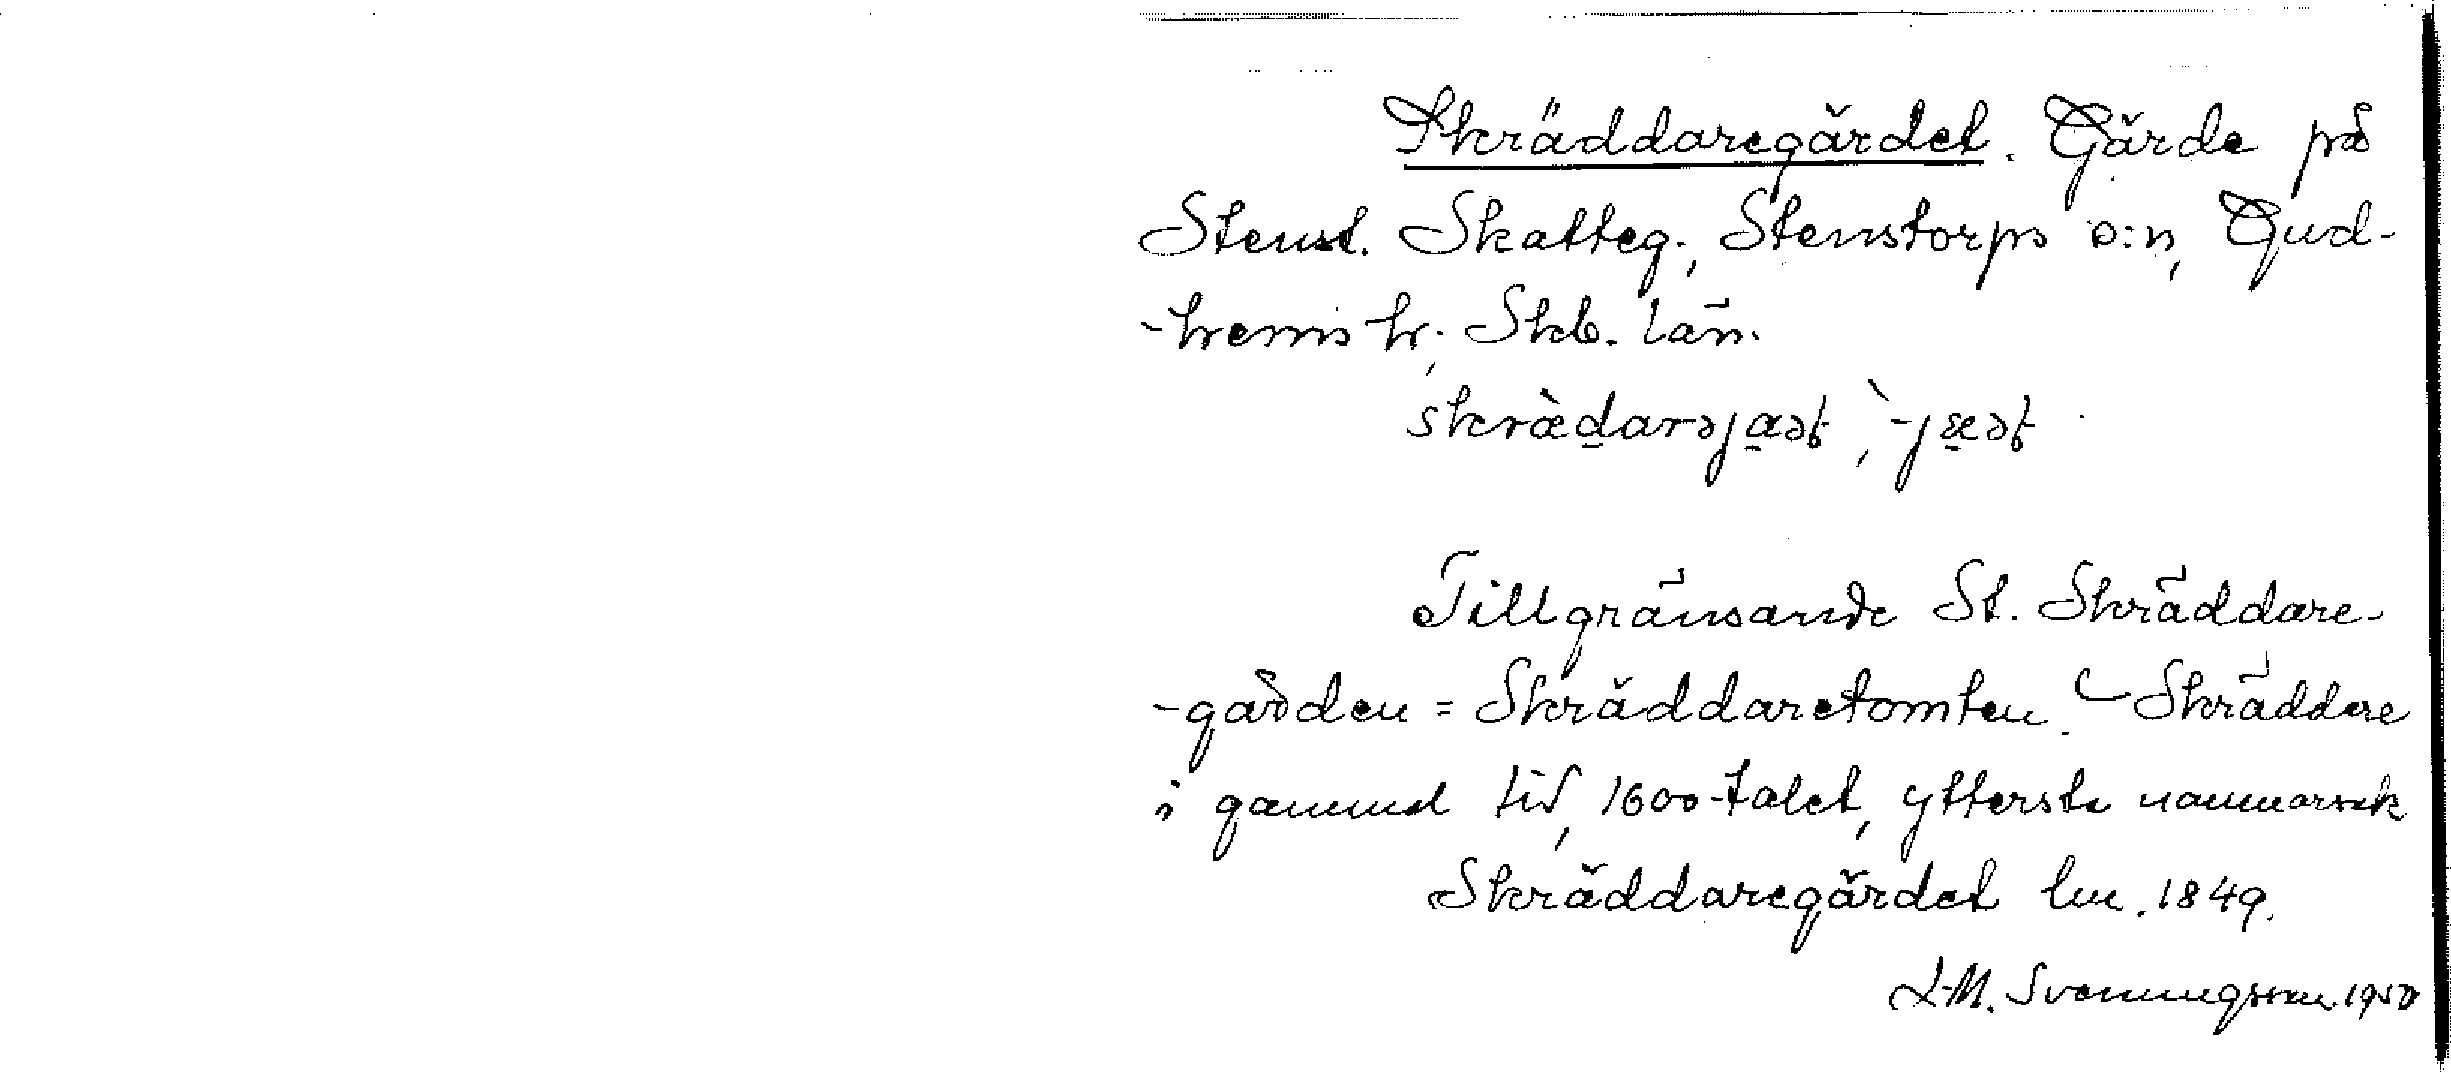 Skräddaregärdet. Gärde på
Stenst. Skatteg., Stenstorps s:n, Gud-
-hems hr, Skb. län.
skrædarəjaət, -jæət
Tillgränsande St. Skräddare-
-gården = Skräddaretomten. Skräddare
i gammal tid, 1600-talet, yttersta namnorsak
Skräddaregärdet lm. 1849.
L-M. Svenungsson 1950